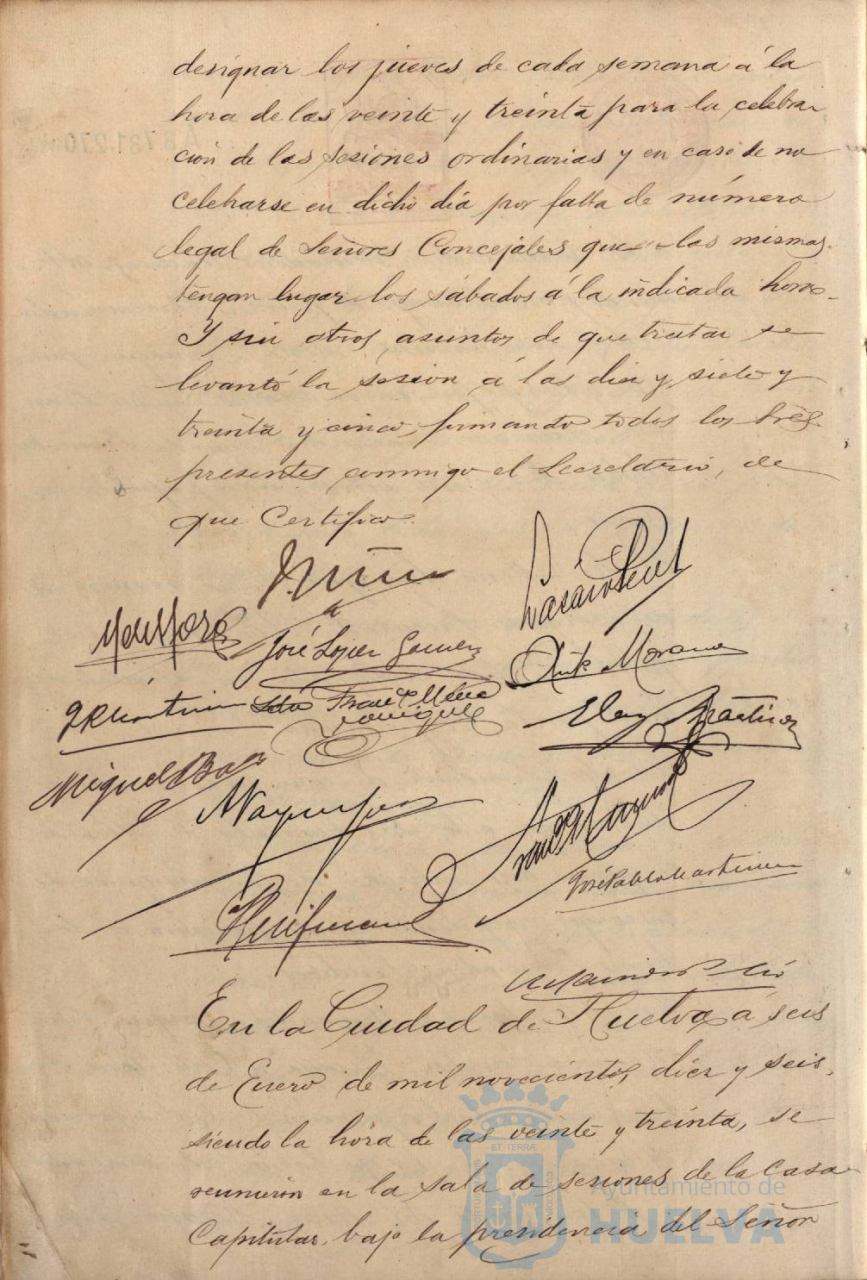 designar los jueves de cada semana á la
hora de las veinte y treinta para la celebra
ción de las sesiones ordinarias y en caso de no
celebrarse en dicho dia por falta de número
legal de Señores Concejales que las mismas
tengan lugar los sábados á la indicada hora.
Y sin otros asuntos de que tratar se
levantó la sesion á las diez y siete y
treinta y cinco, firmando todos los Sres.
presentes conmigo el Secretario, de
que Certifico.
José Lopez Gomez
Morano
Eloy Martinez
Miguel Baez
José Pablo Martinez
En la Ciudad de Huelva á seis
de Enero de mil novecientos diez y seis,
siendo la hora de las veinte y treinta, se
reunieron en la sala de sesiones de la Casa
Capitular, bajo la presidencia del Señor
Ayuntamiento de
HUELVA